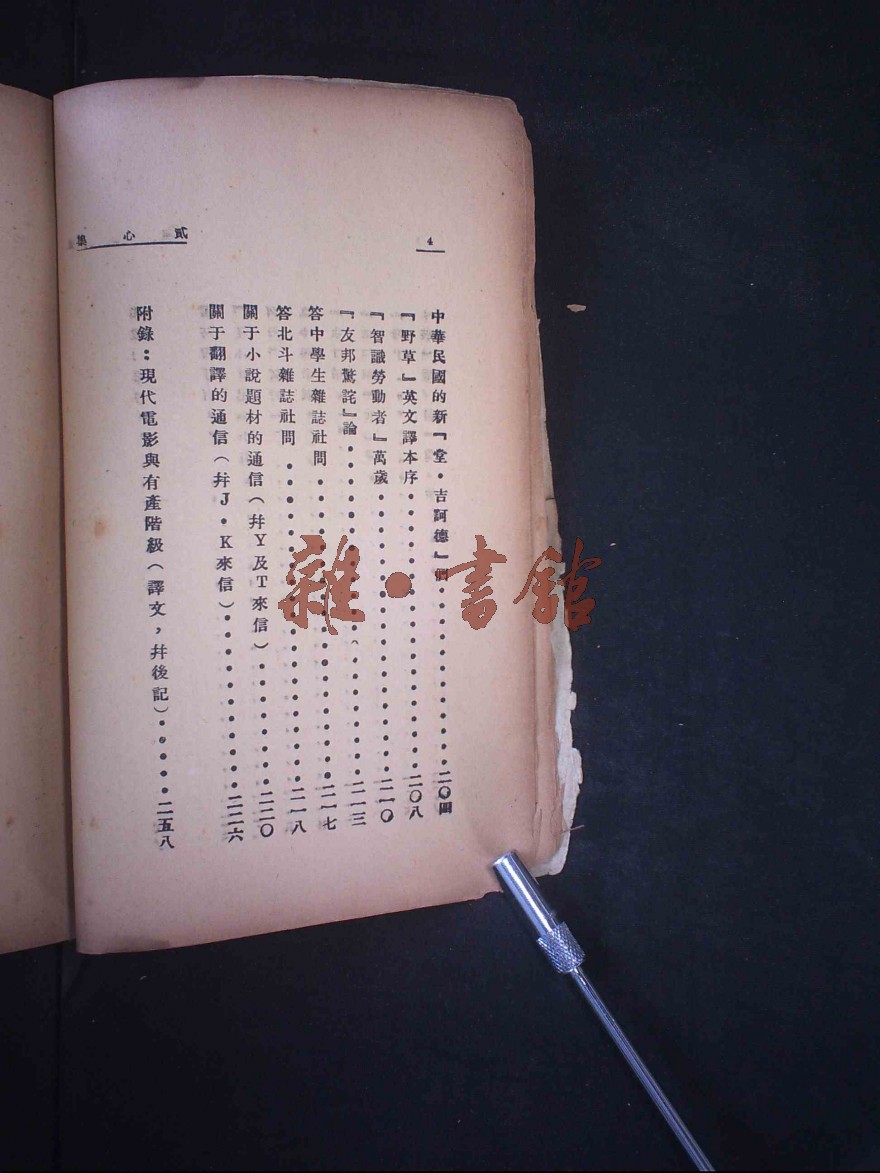 貳心集
4
中華民國的新『堂・吉訶德』們・・・・・・・・・・・二〇四
『野草』英文譯本序・・・・・・・・・・・・・・・・二〇八
『智識勞動者』萬歲・・・・・・・・・・・・・・・・二一〇
『友邦驚詫』論・・・・・・・・・・・・・・・・・・二一三
答中學生雜誌社問・・・・・・・・・・・・・・・・・二一七
答北斗雜誌社問・・・・・・・・・・・・・・・・・・二一八
關于小說題材的通信（幷Y及T來信）・・・・・・・二二〇
關于翻譯的通信（幷J・K來信）・・・・・・・・・・二二六
附錄：現代電影與有產階級（譯文，幷後記）・・・・・二五八
雜・書館